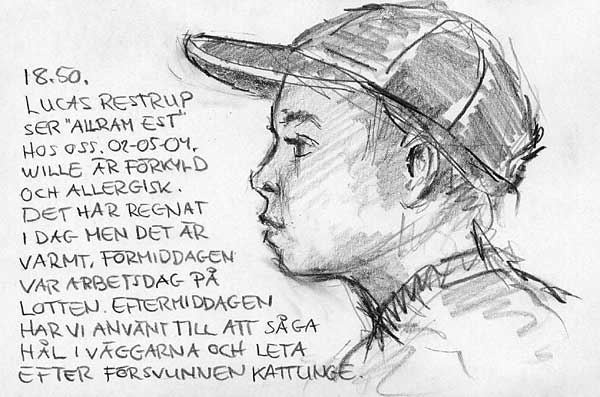 18.50.
LUCAS RESTRUP
SER "ALLRAM EST"
HOS OSS. 02-05-04.
WILLE ÄR FÖRKYLD
OCH ALLERGISK.
DET HAR REGNAT
I DAG MEN DET ÄR
VARMT, FÖRMIDDAGEN
VAR ARBETSDAG PÅ
LOTTEN. EFTERMIDDAGEN
HAR VI ANVÄNT TILL ATT SÅGA
HÅL I VÄGGARNA OCH LETA
EFTER FÖRSVUNNEN KATTUNGE.